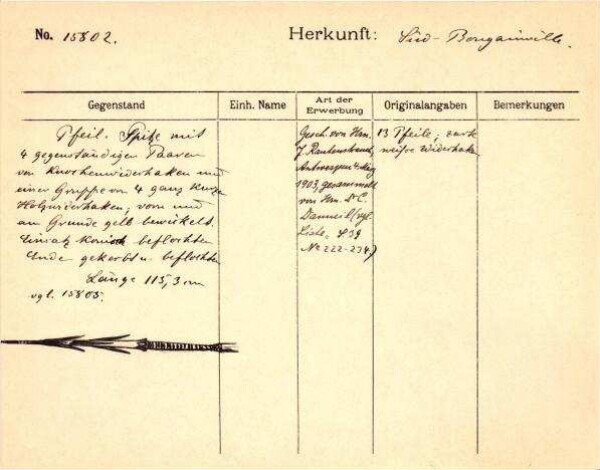 No. 15802.
Herkunft: Süd-Bougainville.
Gegenstand
Einh. Name
Art der Erwerbung
Originalangaben
Bemerkungen
Pfeil. Spitze mit
4 gegenständigen Paaren
von Knochenwiderhaken und
einer Gruppe von 4 ganz kurzen
Holzwiderhaken, vorn und
am Grunde gelb bewickelt.
Einsatz konisch beflochten
Ende gekerbt u. beflochten
Länge 115,3 cm
vgl. 15805.
Gesch. von Hrn.
J. Rautenstrauch,
Antwerpen
1903, gesammelt
von Hrn. Dr. C.
(vgl.
Liste. S 39
No 222-234.)
13 Pfeile, stark
weisse Widerhaken